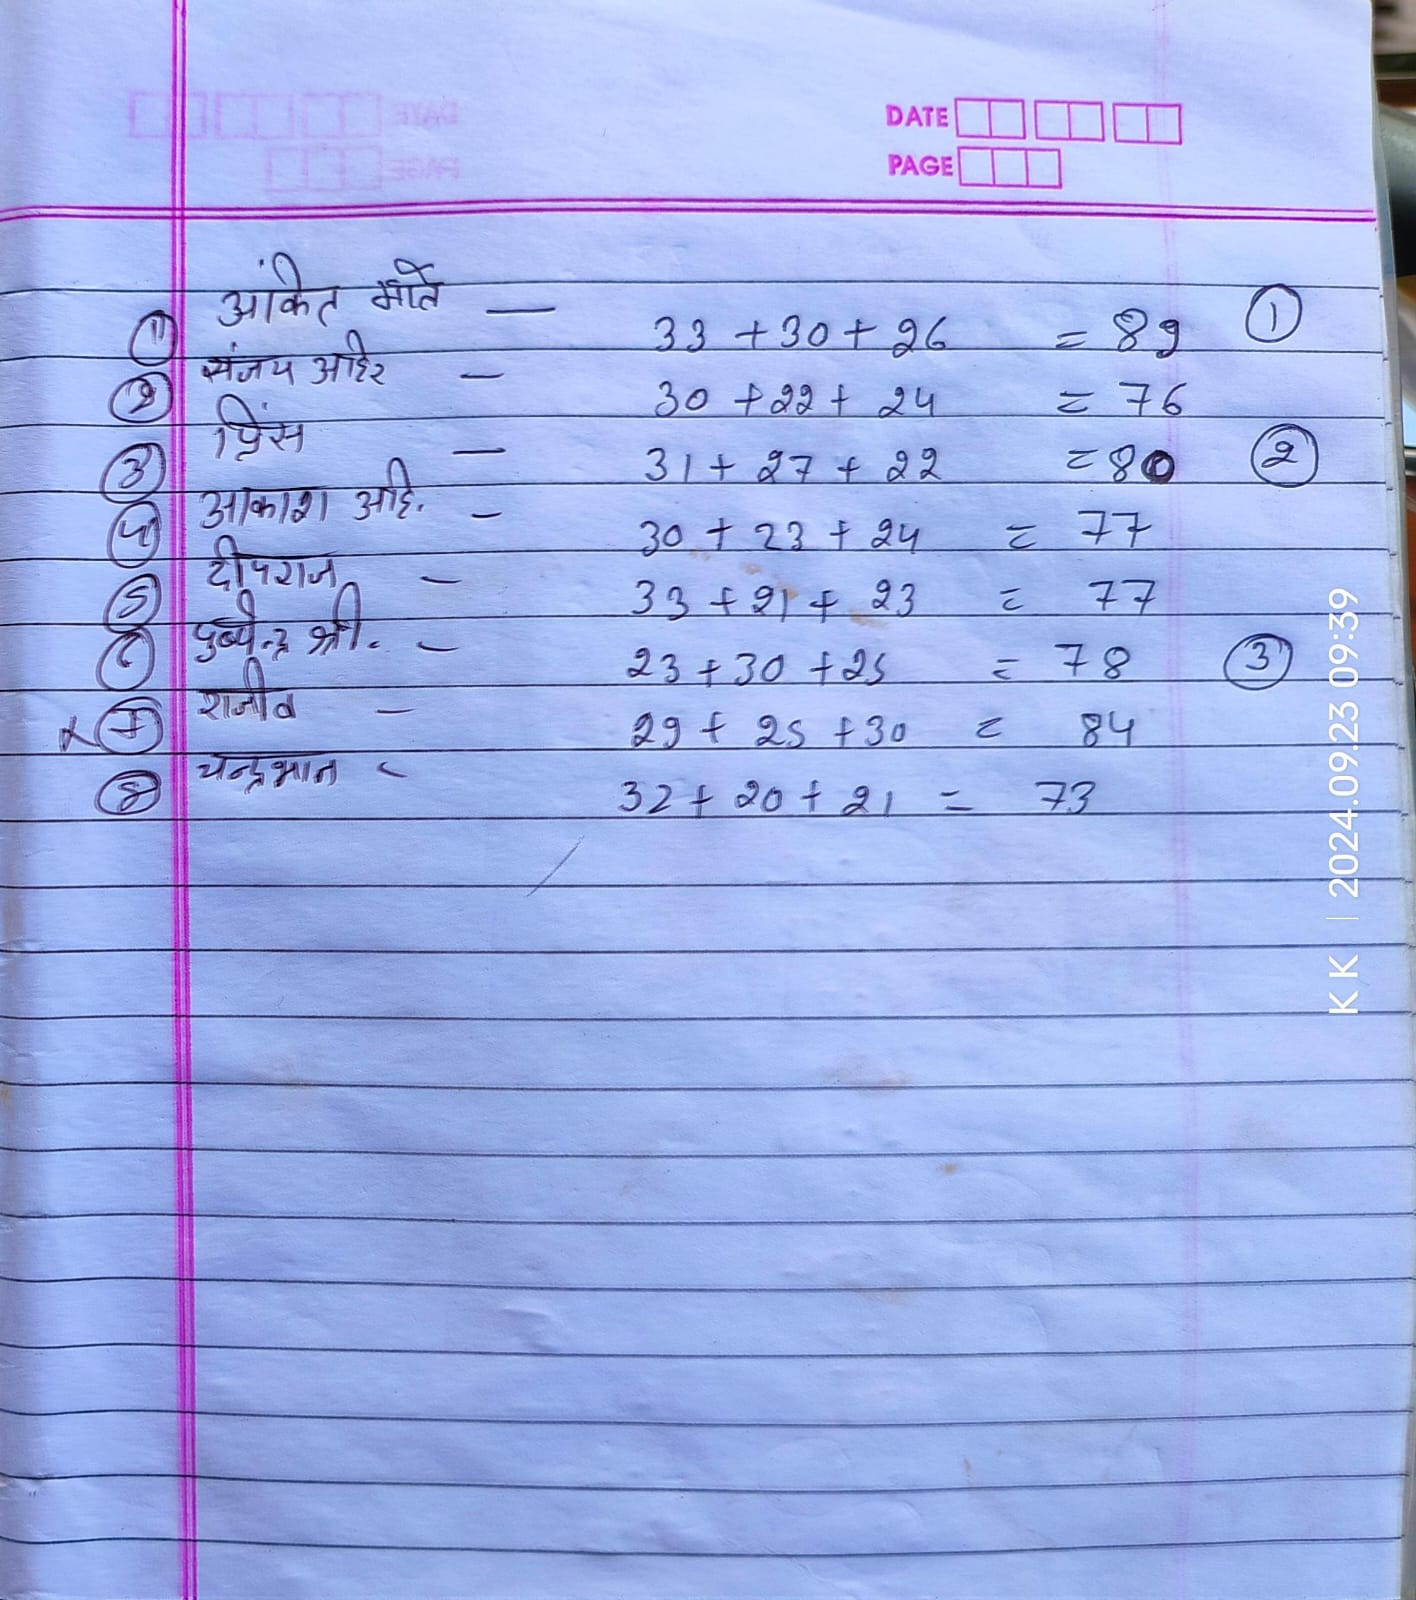 DATE
PAGE
① अंकित मौर्त — 33 + 30 + 26 = 89 ①
② संजय अहिर — 30 + 22 + 24 = 76
③ प्रिंस — 31 + 27 + 22 = 80 ②
④ आकाश अहि. — 30 + 23 + 24 = 77
⑤ दीपराज — 33 + 21 + 23 = 77
⑥ पुष्पेन्द्र श्री. — 23 + 30 + 25 = 78 ③
⑦ राजीव — 29 + 25 + 30 = 84
⑧ चन्द्रभान - 32 + 20 + 21 = 73
K K | 2024.09.23 09:39